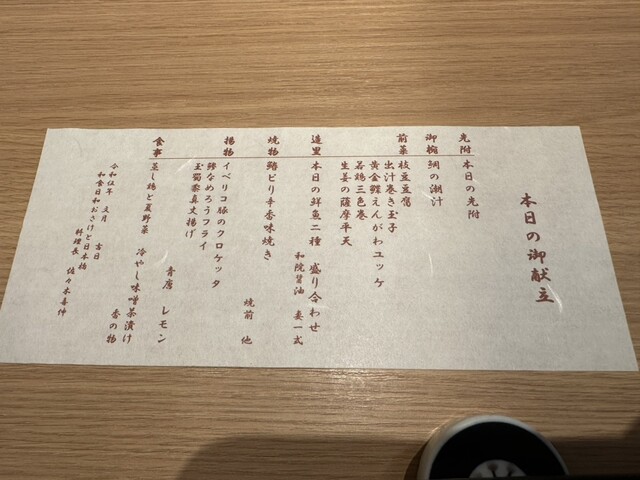 本日の御献立
先附 本日の先附
御椀 鯛の潮汁
前菜 枝豆豆腐
出汁巻き玉子
黄金鰈えんがわユッケ
若鶏三色巻
生姜の薩摩平天
造里 本日の鮮魚二種 盛り合わせ
和院醤油 妻一式
焼物 鰆ピリ辛香味焼き
焼前 他
揚物 イベリコ豚のクロケッタ
鯵なめろうフライ
玉蜀黍真丈揚げ
青唐 レモン
食事 蒸し鶏と夏野菜 冷やし味噌茶漬け
香の物
令和伍年 文月 吉日
和食日和おさけと日本橋
料理長 佐々木喜仲